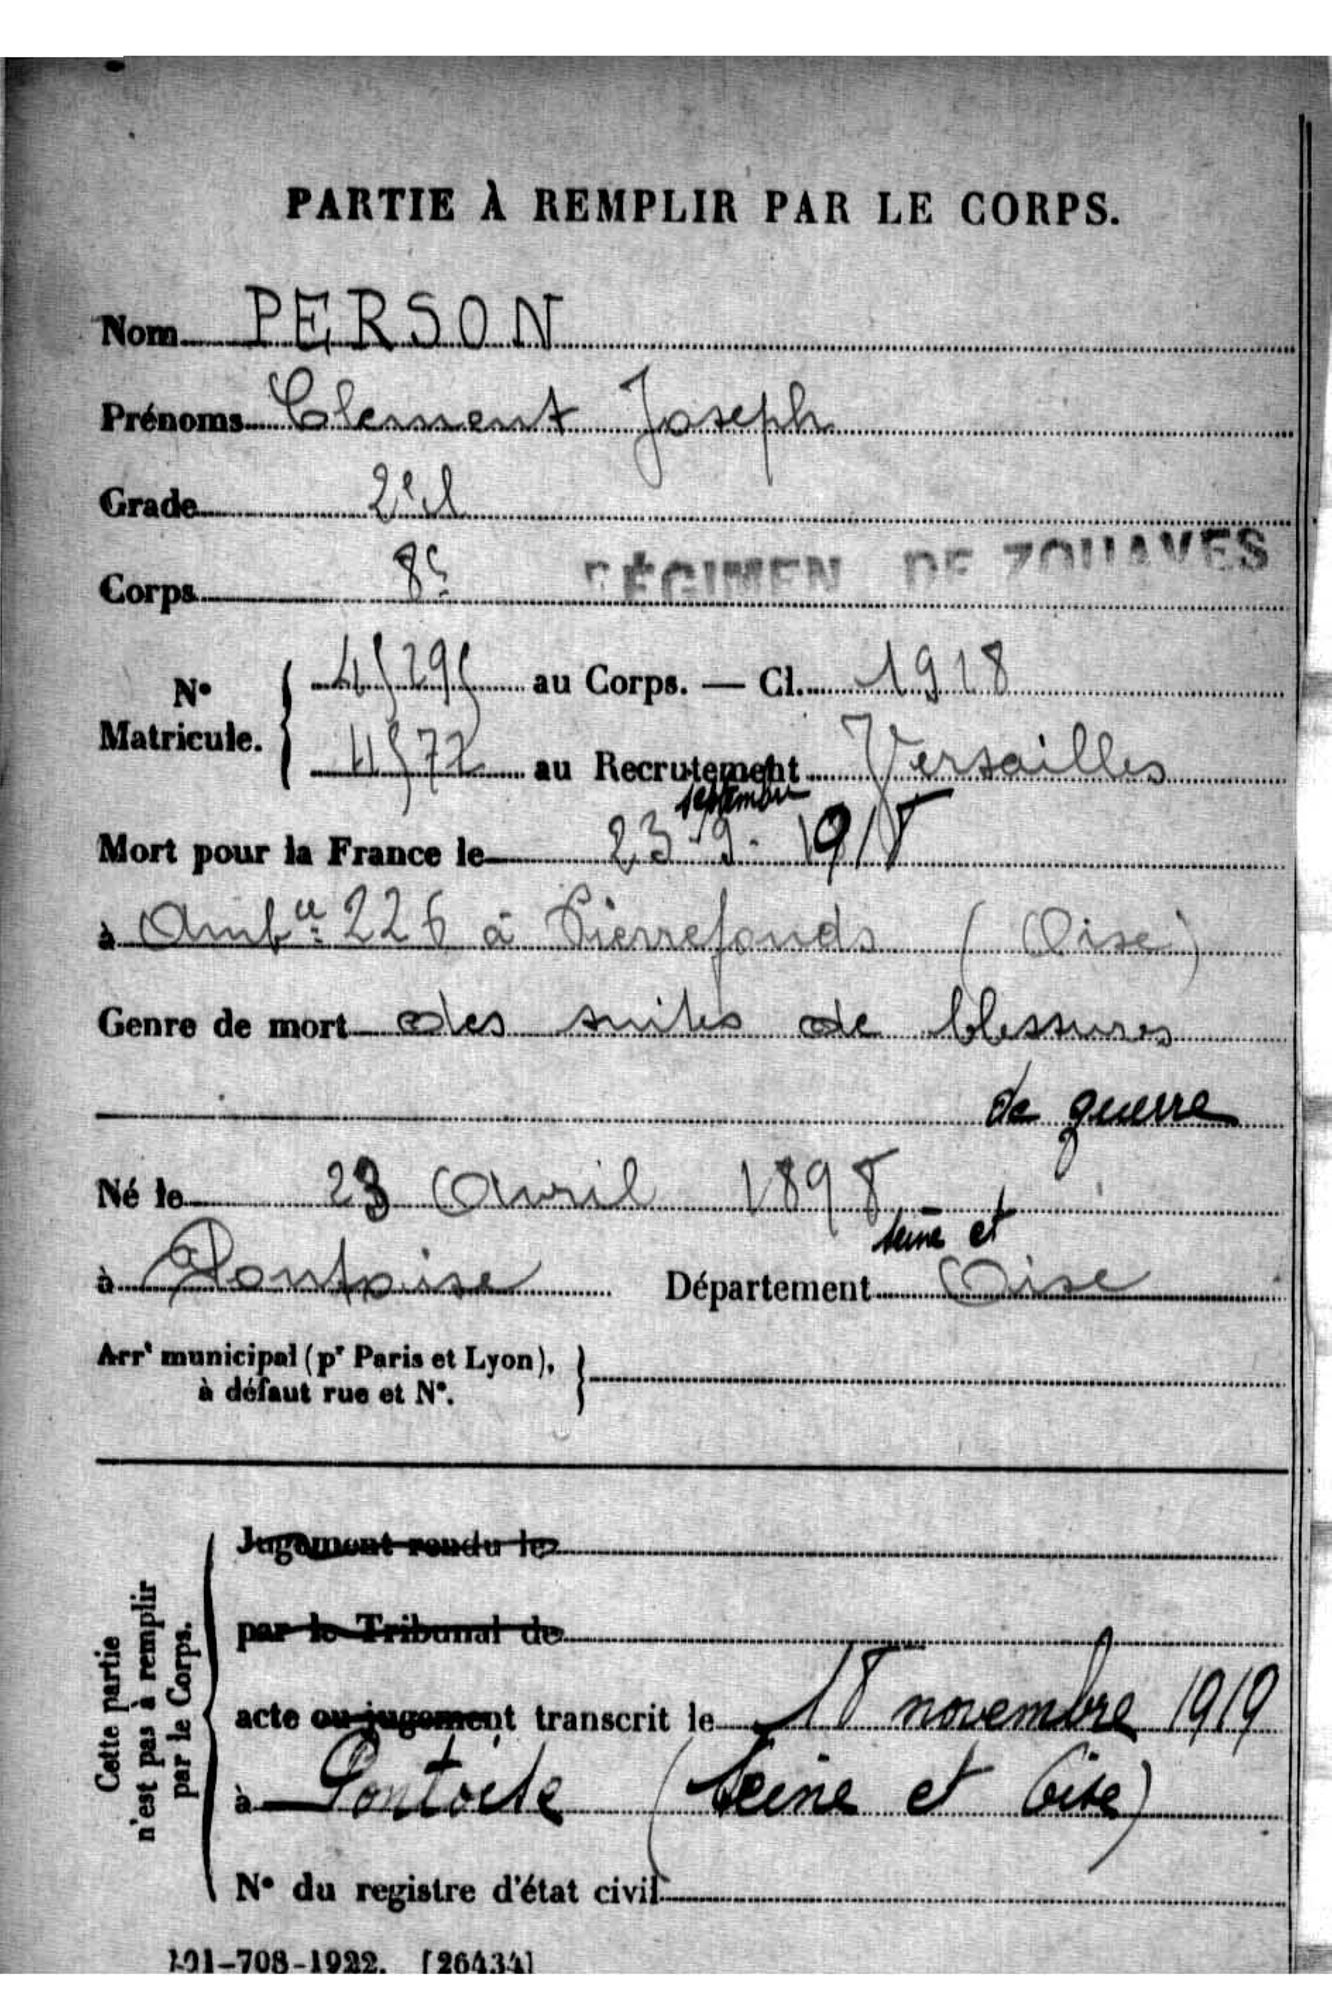 PARTIE À REMPLIR PAR LE CORPS.
Nom PERSON
Prénoms Clement Joseph
Grade 2e cl
Corps 8e RÉGIMEN DE ZOUAVES
No Matricule. 45295 au Corps. — Cl. 1918
4572 au Recrutement Versailles
septembre
Mort pour la France le 23-9-1918
à Ambce 226 à Pierrefonds (Oise)
Genre de mort des suites de blessures
de guerre
Né le 23 Avril 1898
Seine et
à Pontoise Département Oise
Arrt municipal (pr Paris et Lyon),
à défaut rue et No.
Jugement rendu le
par le Tribunal de
acte ou jugement transcrit le 18 novembre 1919
à Pontoise (Seine et Oise)
No du registre d'état civil
Cette partie
n'est pas à remplir
par le Corps.
101-708-1922. [26434]